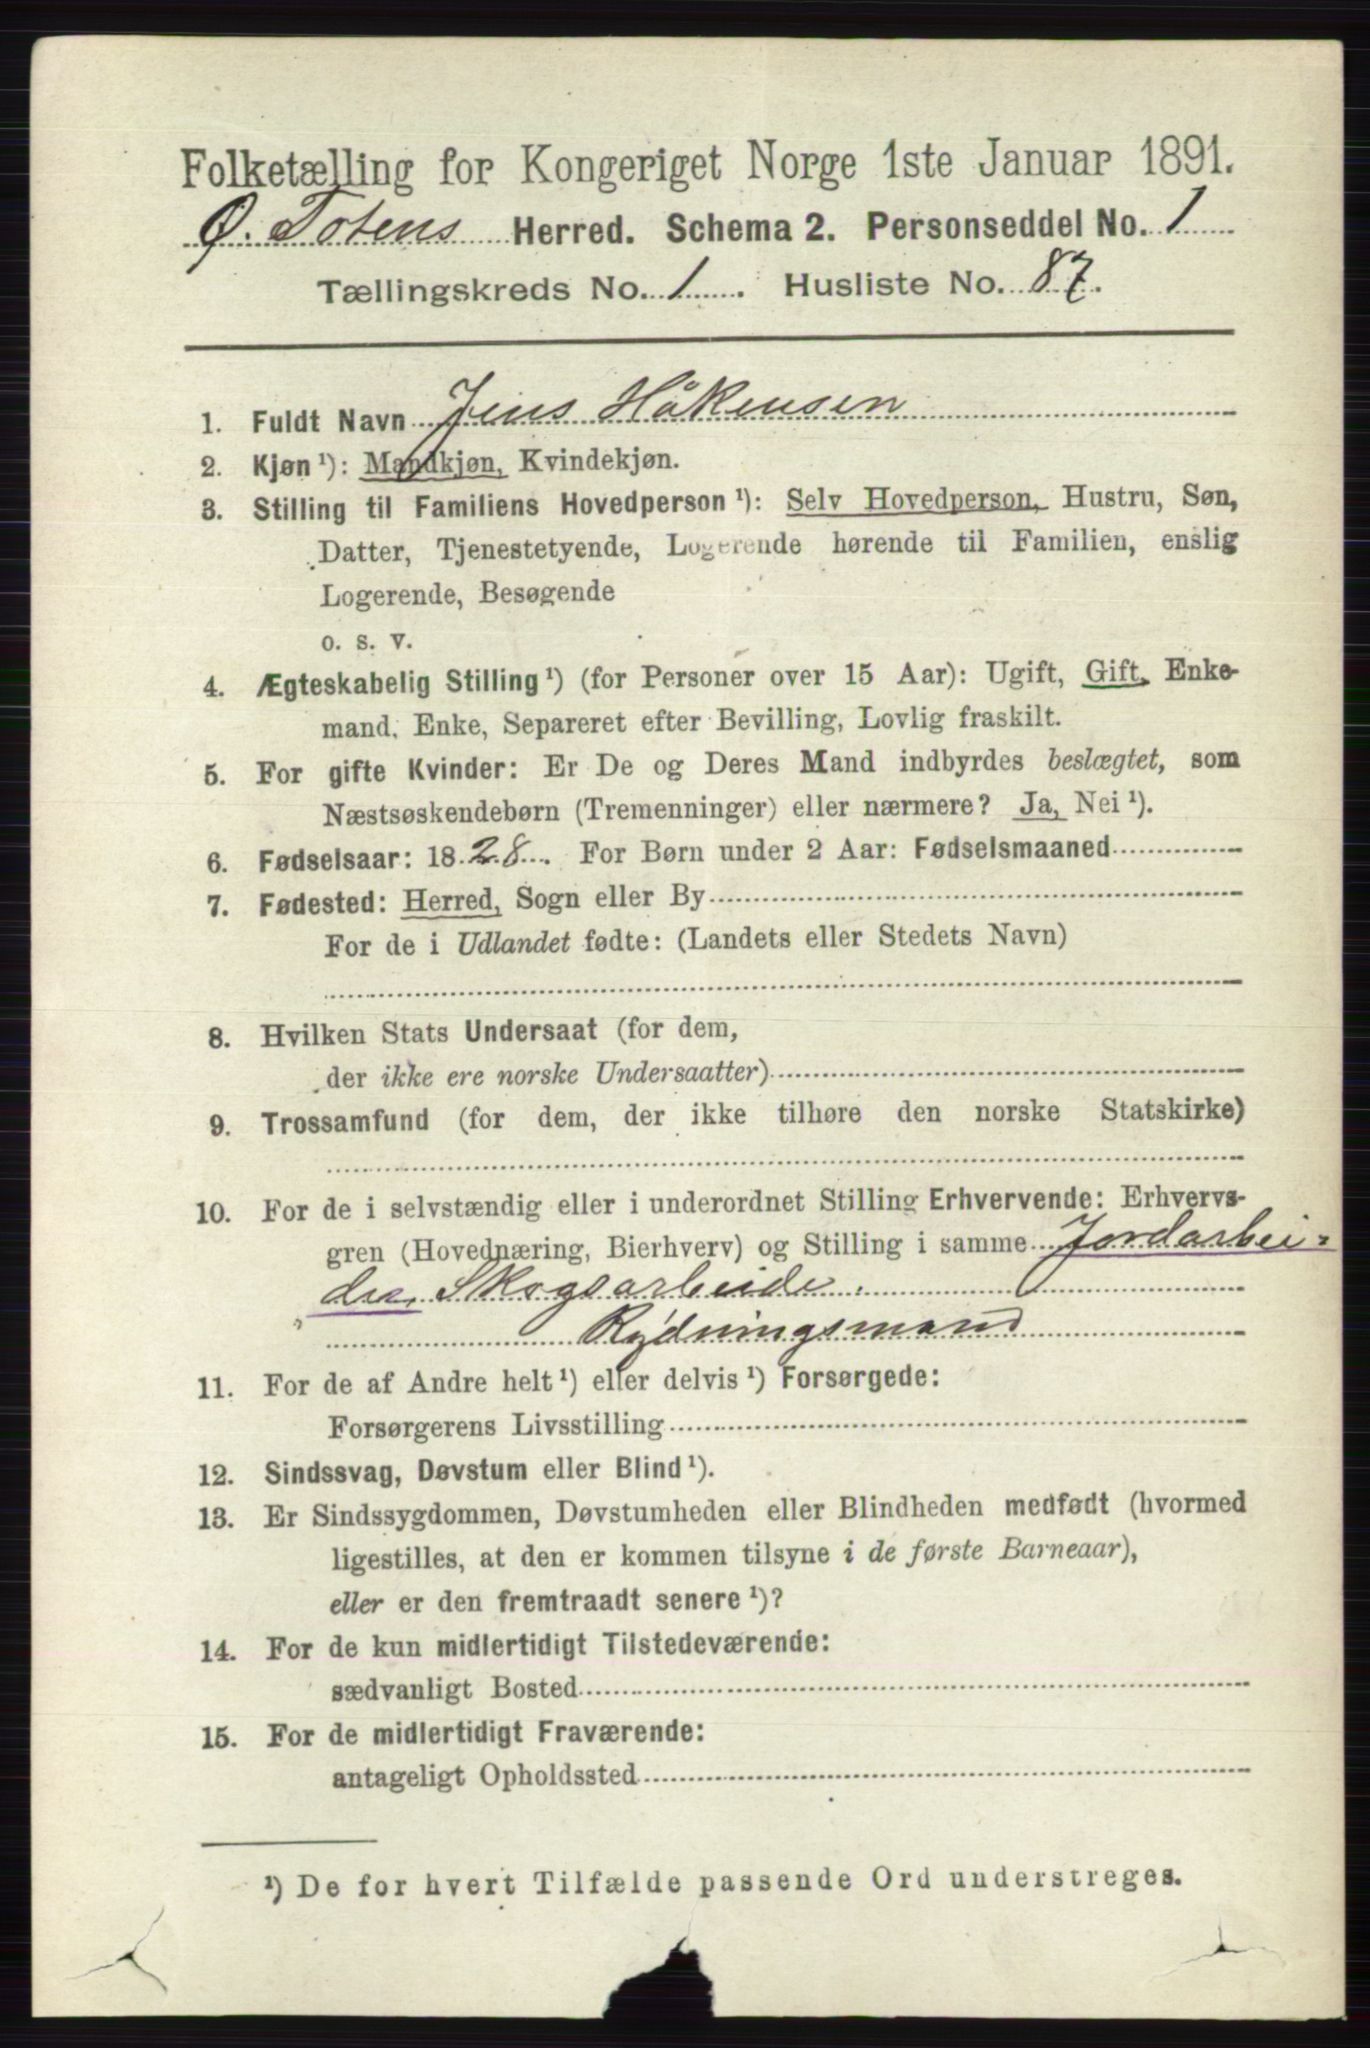 Folketælling for Kongeriget Norge 1ste Januar 1891.
Ø. Totens Herred. Schema 2. Personseddel No. 1
Tællingskreds No. 1. Husliste No. 87.
1. Fuldt Navn Jens Håkensen
2. Kjøn ¹): Mandkjøn, Kvindekjøn.
3. Stilling til Familiens Hovedperson ¹): Selv Hovedperson, Hustru, Søn,
Datter, Tjenestetyende, Logerende hørende til Familien, enslig
Logerende, Besøgende
o. s. v.
4. Ægteskabelig Stilling ¹) (for Personer over 15 Aar): Ugift, Gift, Enke-
mand, Enke, Separeret efter Bevilling, Lovlig fraskilt.
5. For gifte Kvinder: Er De og Deres Mand indbyrdes beslægtet, som
Næstsøskendebørn (Tremenninger) eller nærmere? Ja, Nei ¹).
6. Fødselsaar: 1828. For Børn under 2 Aar: Fødselsmaaned
7. Fødested: Herred, Sogn eller By
For de i Udlandet fødte: (Landets eller Stedets Navn)
8. Hvilken Stats Undersaat (for dem,
der ikke ere norske Undersaatter)
9. Trossamfund (for dem, der ikke tilhøre den norske Statskirke)
10. For de i selvstændig eller i underordnet Stilling Erhvervende: Erhvervs-
gren (Hovednæring, Bierhverv) og Stilling i samme Jordarbei-
der, Skogsarbeide.
Rydningsmand
11. For de af Andre helt ¹) eller delvis ¹) Forsørgede:
Forsørgerens Livsstilling
12. Sindssvag, Døvstum eller Blind ¹).
13. Er Sindssygdommen, Døvstumheden eller Blindheden medfødt (hvormed
ligestilles, at den er kommen tilsyne i de første Barneaar),
eller er den fremtraadt senere ¹)?
14. For de kun midlertidigt Tilstedeværende:
sædvanligt Bosted
15. For de midlertidigt Fraværende:
antageligt Opholdssted
¹) De for hvert Tilfælde passende Ord understreges.